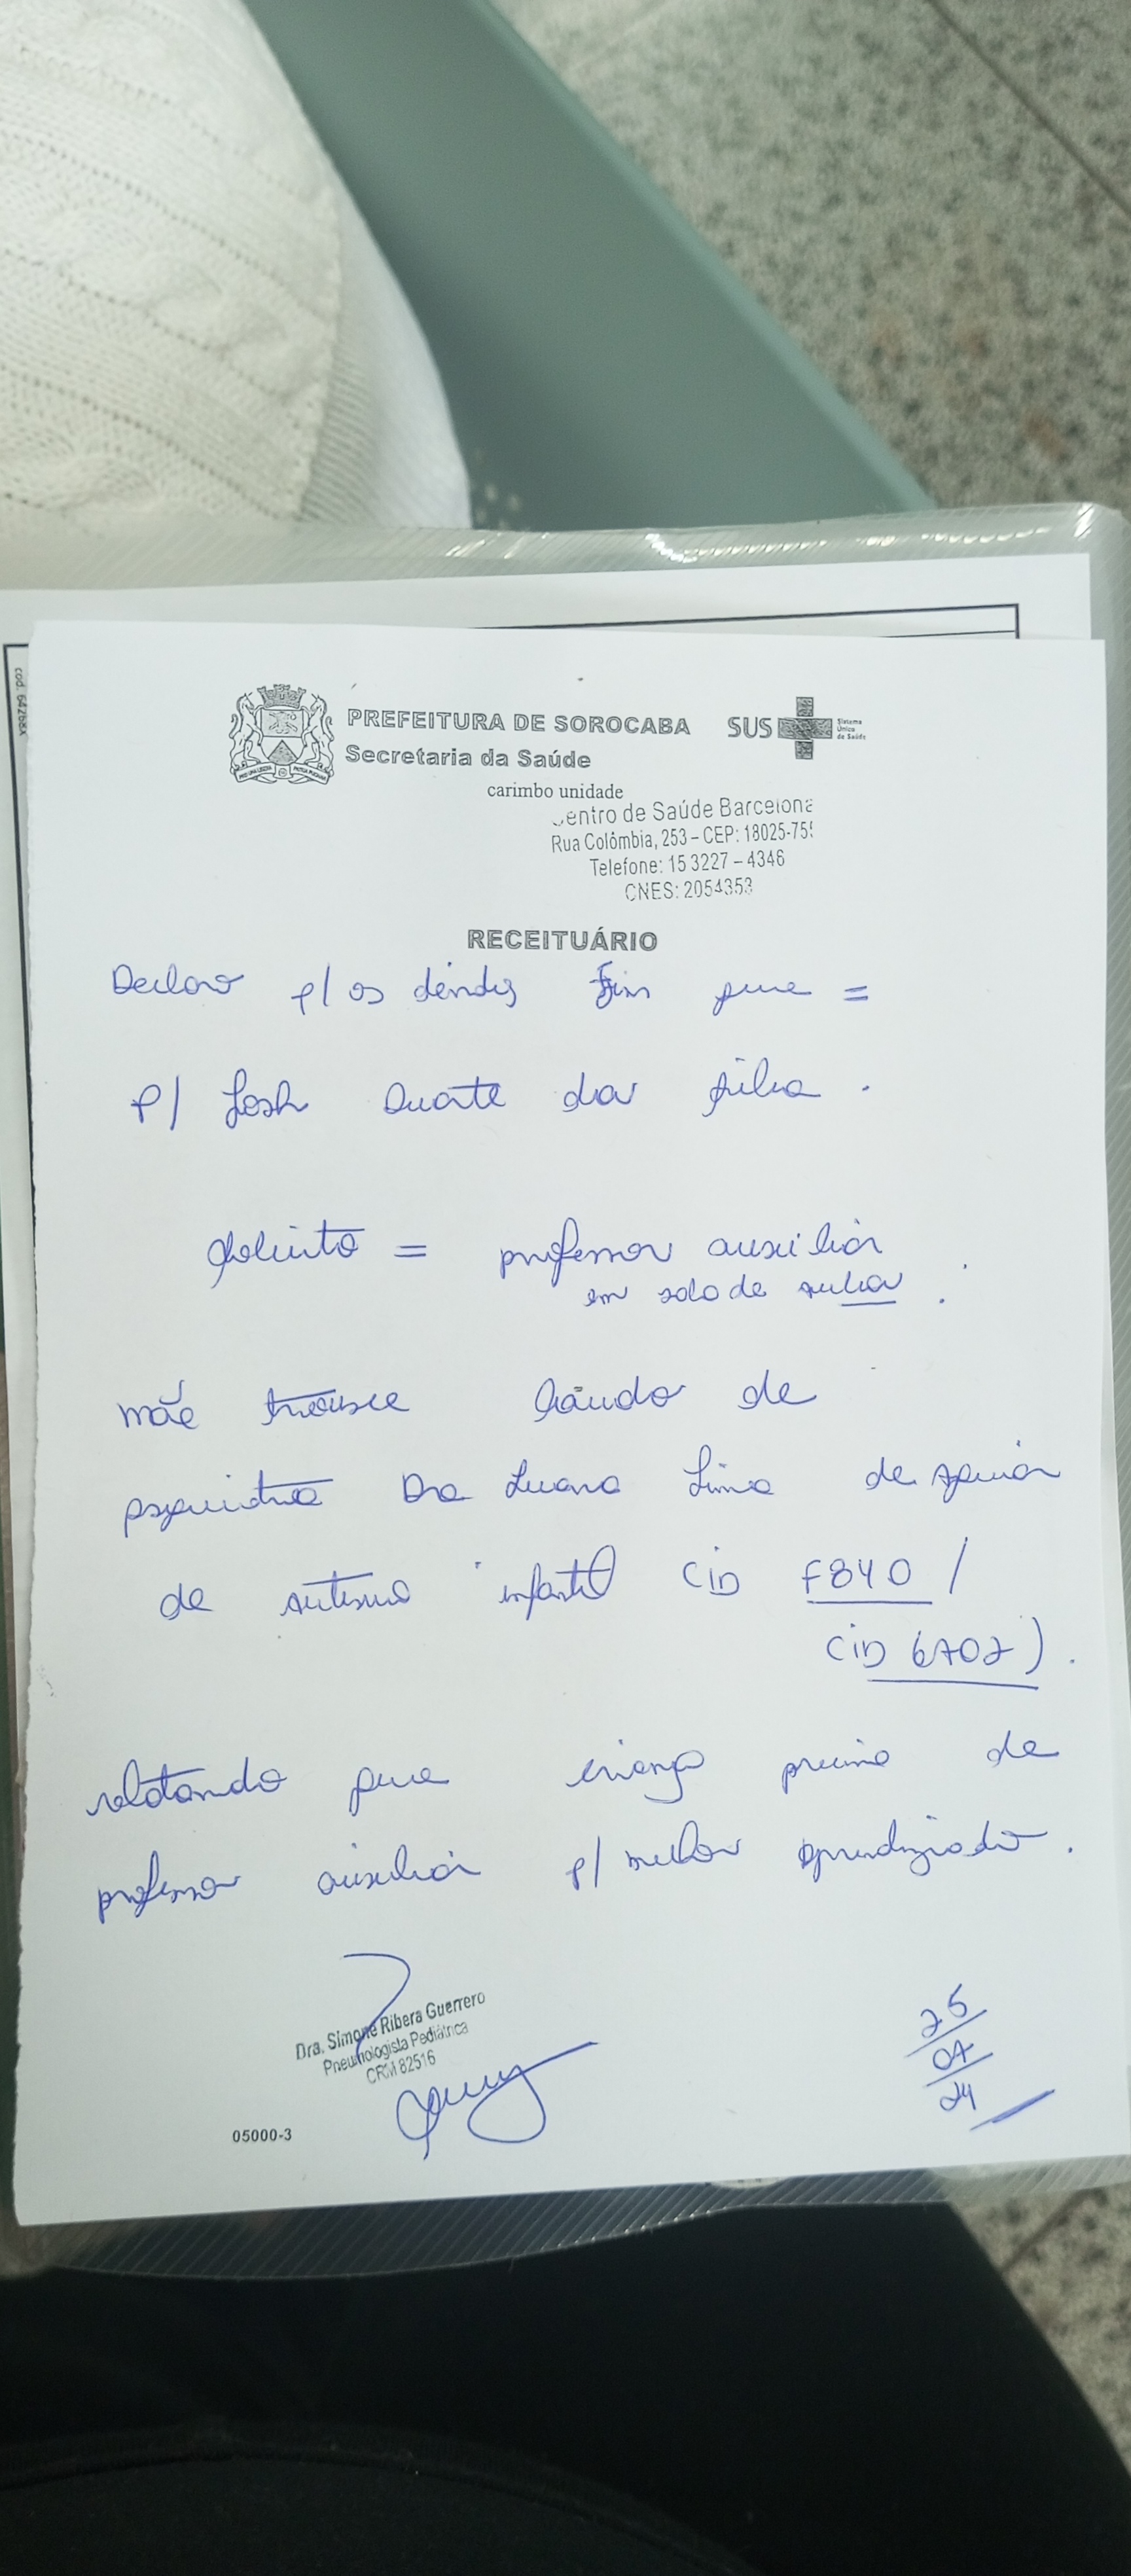 cod. 64268X
PREFEITURA DE SOROCABA
Secretaria da Saúde
SUS
Sistema
Único
de Saúde
carimbo unidade
entro de Saúde Barcelona
Rua Colômbia, 253 – CEP: 18025-75
Telefone: 15 3227 – 4346
CNES: 2054353
RECEITUÁRIO
Declaro p/ os devidos fins que =
p/ Duarte da
Solicito = professor auxiliar
em sala de aula .
mãe trouxe laudo de
psiquiatra Dra Luana Lima de Aguiar
de autismo infantil CID F840 /
CID 6A02 ) .
relatando que criança precisa de
professor auxiliar p/ melhor aprendizado .
Dra. Simone Ribera Guerrero
Pneumologista Pediátrica
CRM 82516
25
07
24
05000-3